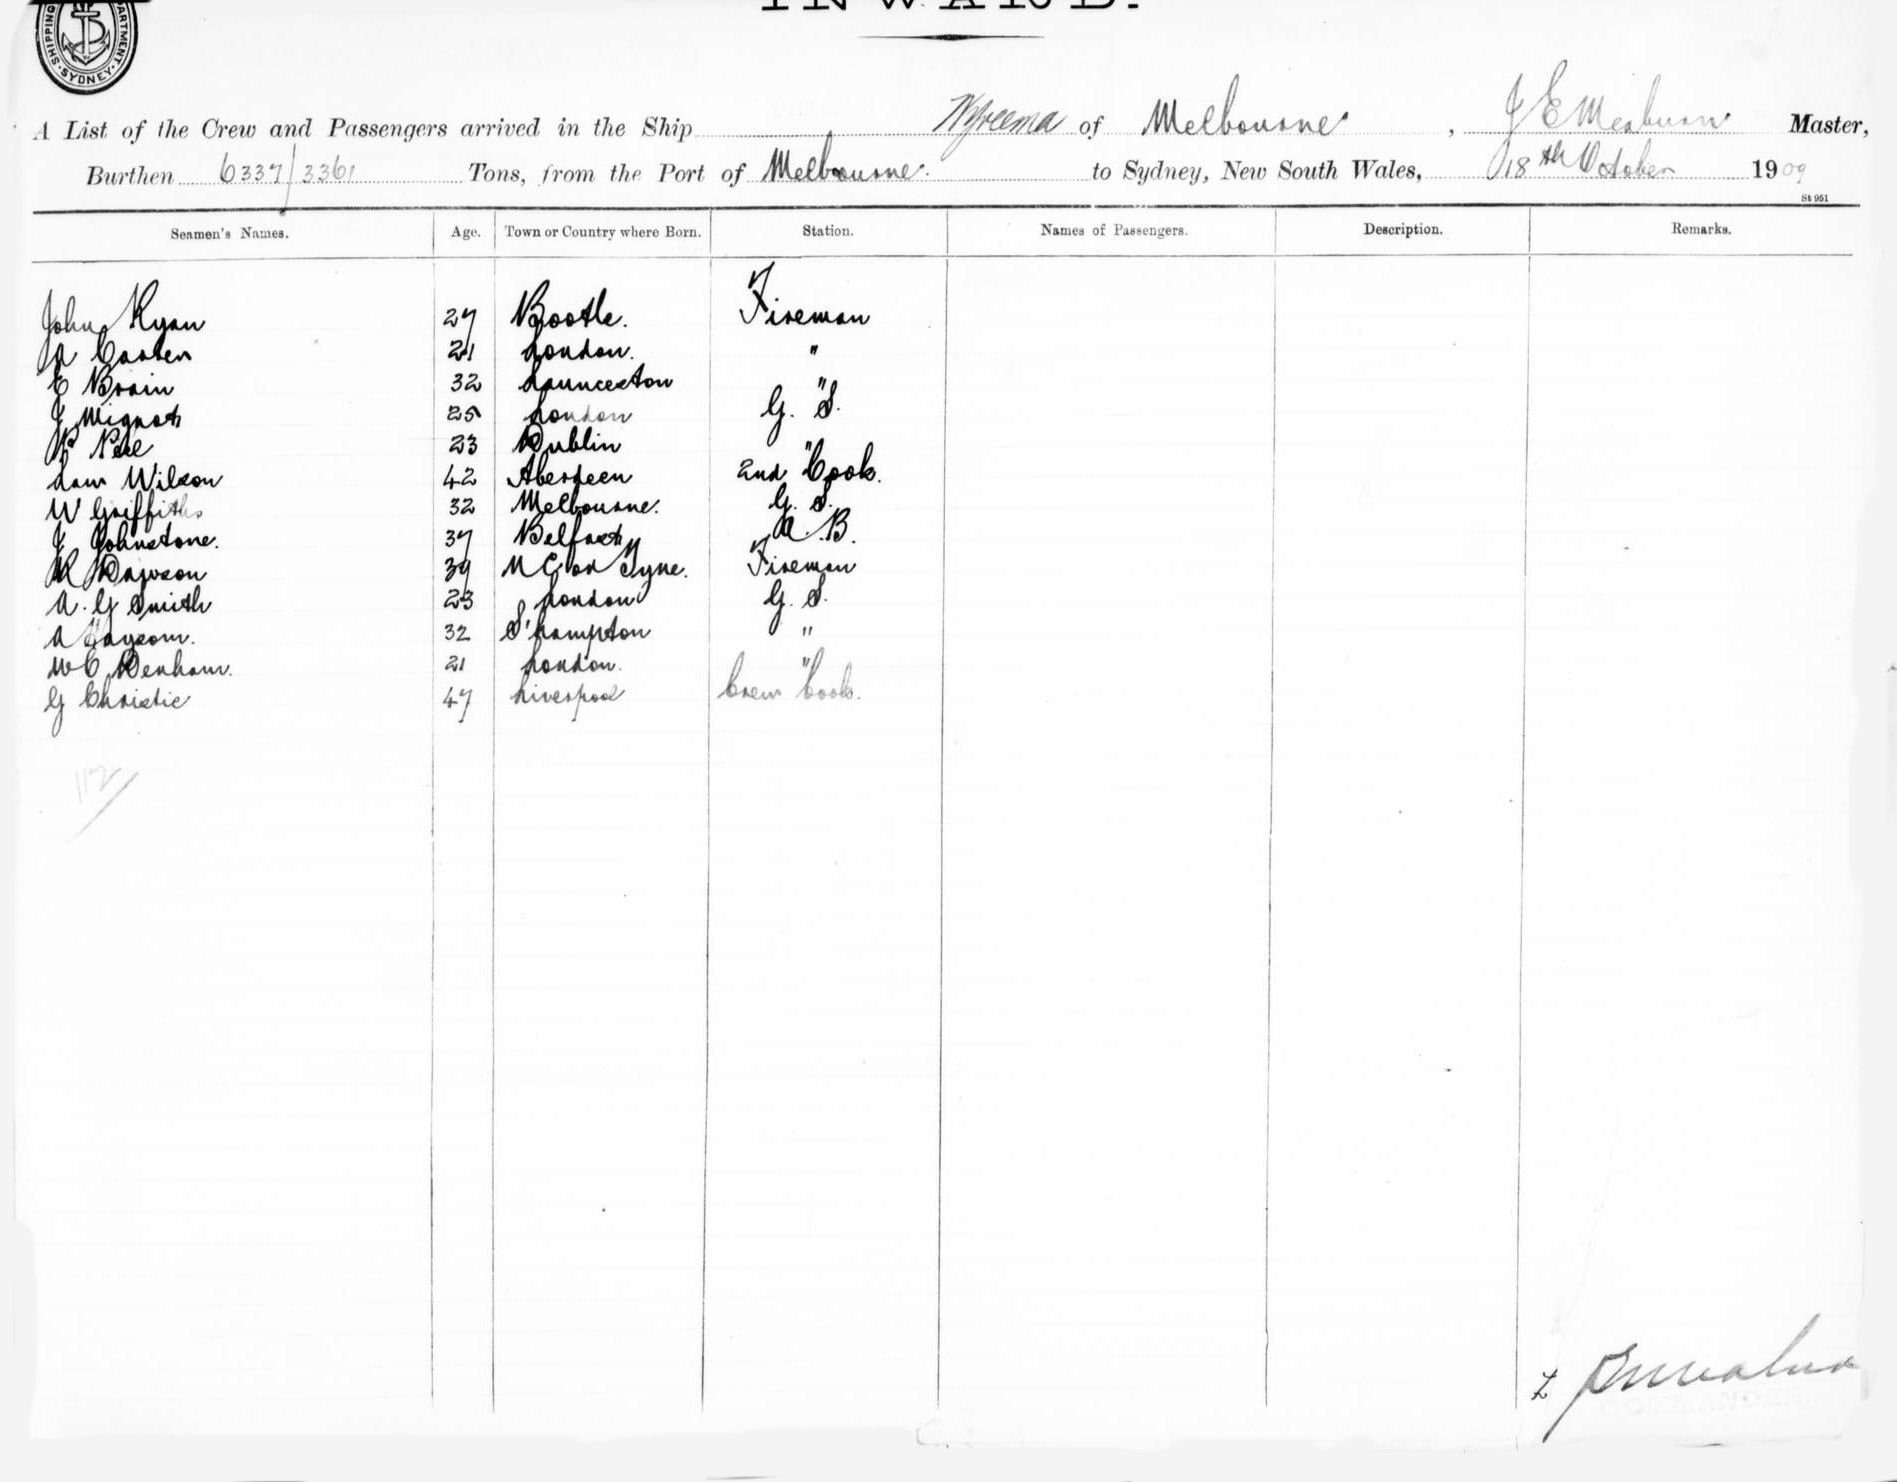 INWARD.
SHIPPING DEPARTMENT SYDNEY
A List of the Crew and Passengers arrived in the Ship Wyreema of Melbourne, J E Meaburn Master,
Burthen 6337/3361 Tons, from the Port of Melbourne to Sydney, New South Wales, 18th October 1909
St 951
Seamen's Names. Age. Town or Country where Born. Station. Names of Passengers. Description. Remarks.
John Ryan 27 Bootle. Fireman
A Carter 21 London. "
E Brain 32 Launceston "
J Mignot 25 London G. S.
P Neil 23 Dublin "
Sam Wilson 42 Aberdeen 2nd Cook.
W Griffiths 32 Melbourne. G. S.
J Johnstone. 37 Belfast A. B.
R Dawson 39 N C on Tyne. Fireman
A. G Smith 23 London G. S.
A Haysom. 32 S'hampton "
W C Denham. 21 London. "
G Christie 47 Liverpool Crew Cook.
112